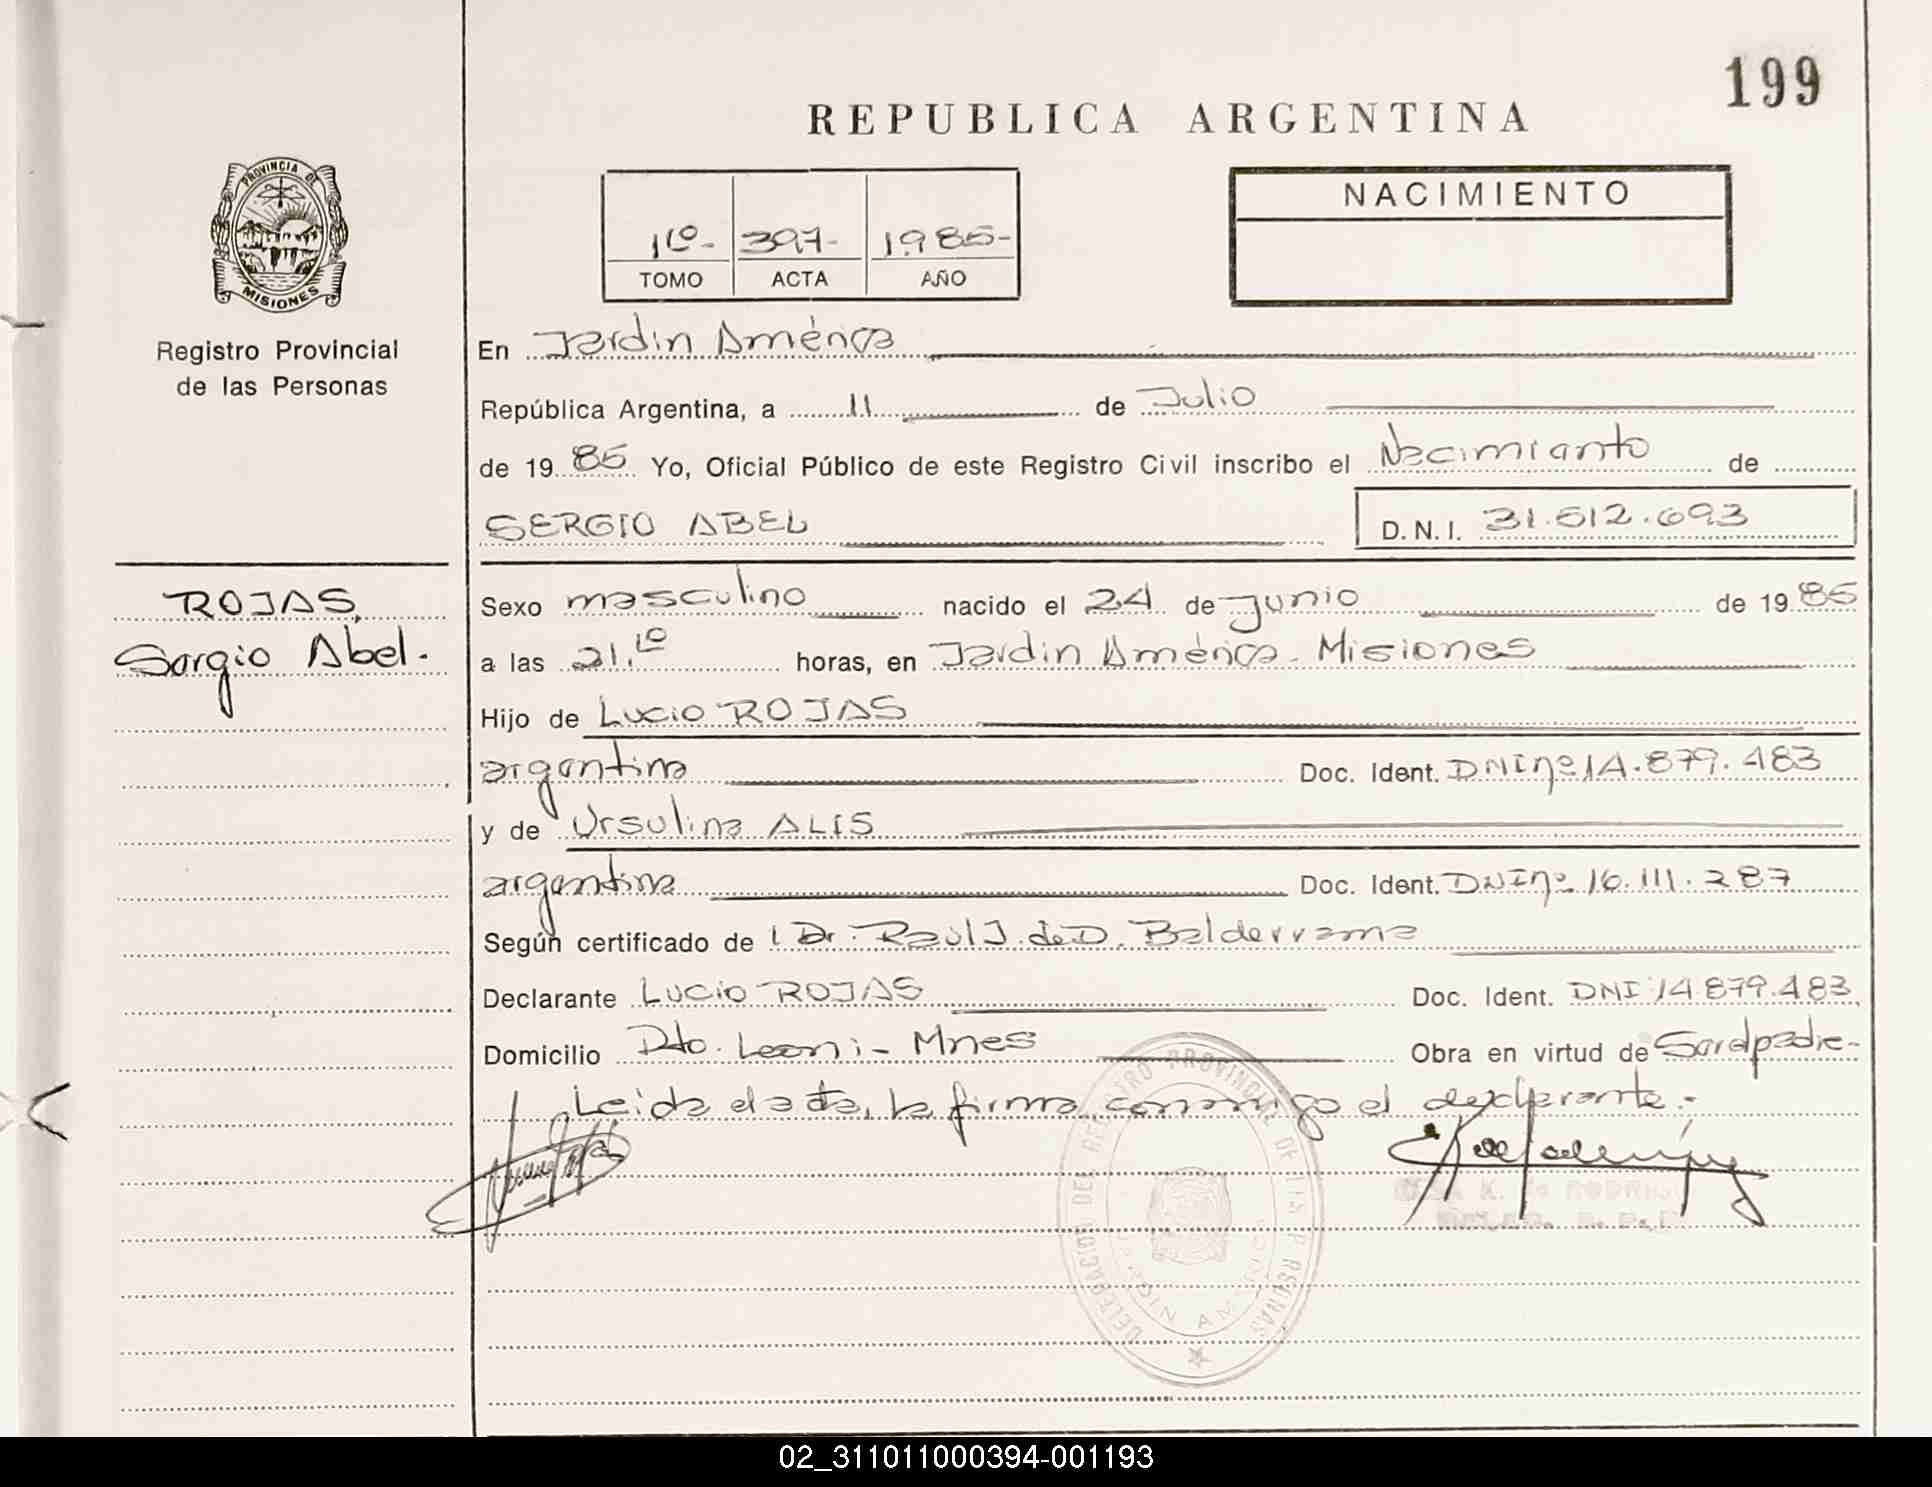 199
REPUBLICA ARGENTINA
PROVINCIA DE
MISIONES
Registro Provincial
de las Personas
1º- 397- 1985-
TOMO ACTA AÑO
NACIMIENTO
En Jardin América
República Argentina, a 11 de Julio
de 1985 Yo, Oficial Público de este Registro Civil inscribo el Nacimiento de
SERGIO ABEL D.N.I. 31.512.693
ROJAS,
Sergio Abel.
Sexo masculino nacido el 24 de Junio de 1985
a las 21,10 horas, en Jardin América - Misiones
Hijo de Lucio ROJAS
argentina Doc. Ident. DNI nº 14.879.483
y de Ursulina ALIS
argentina Doc. Ident. DNI nº 16.111.287
Según certificado de Dr. Raúl J. de D. Balderrama
Declarante Lucio ROJAS Doc. Ident. DNI 14.879.483
Domicilio Dto. Leoni - Mnes Obra en virtud de Ser el padre-
Leida el acta, la firma conmigo el declarante.-
DELEGACION DEL REGISTRO PROVINCIAL DE LAS PERSONAS
JARDIN AMERICA
02_311011000394-001193